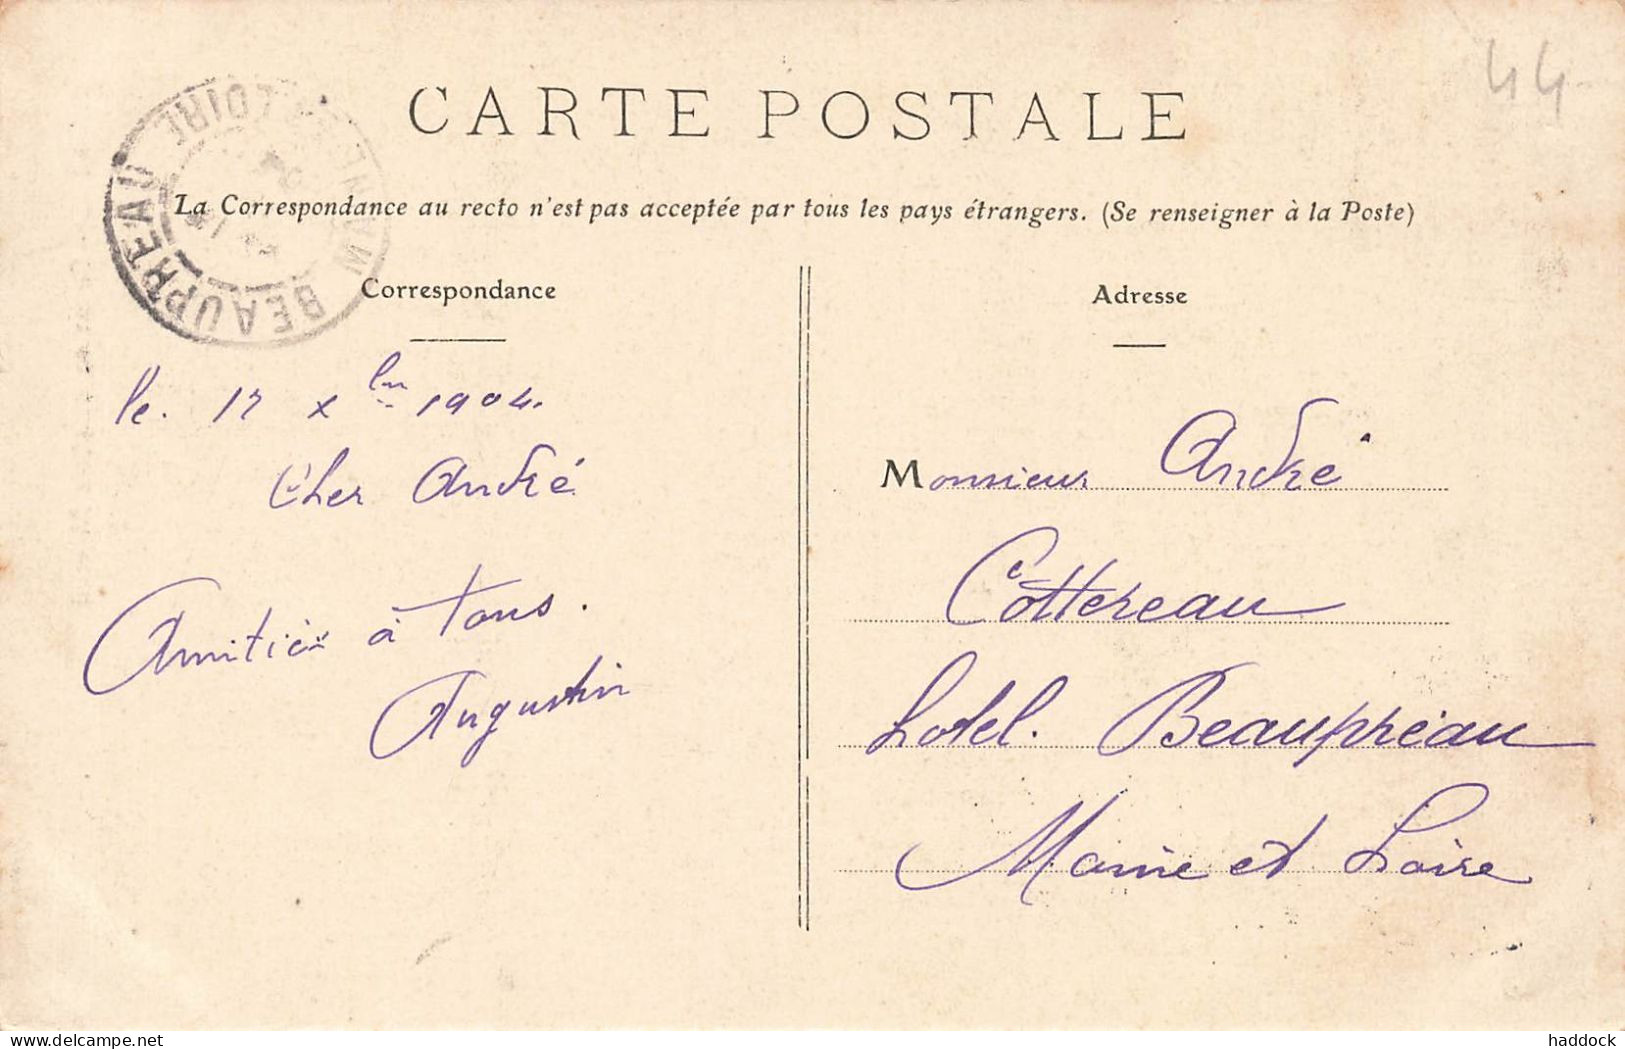 44
CARTE POSTALE
La Correspondance au recto n'est pas acceptée par tous les pays étrangers. (Se renseigner à la Poste)
BEAUPREAU
LOIRE
Correspondance
le. 17 Xbre 1904.
Cher André
Amitiés à tous.
Augustin
Adresse
Monsieur André
Cottereau
hotel. Beaupréau
Maine et Loire
delcampe.net
haddock